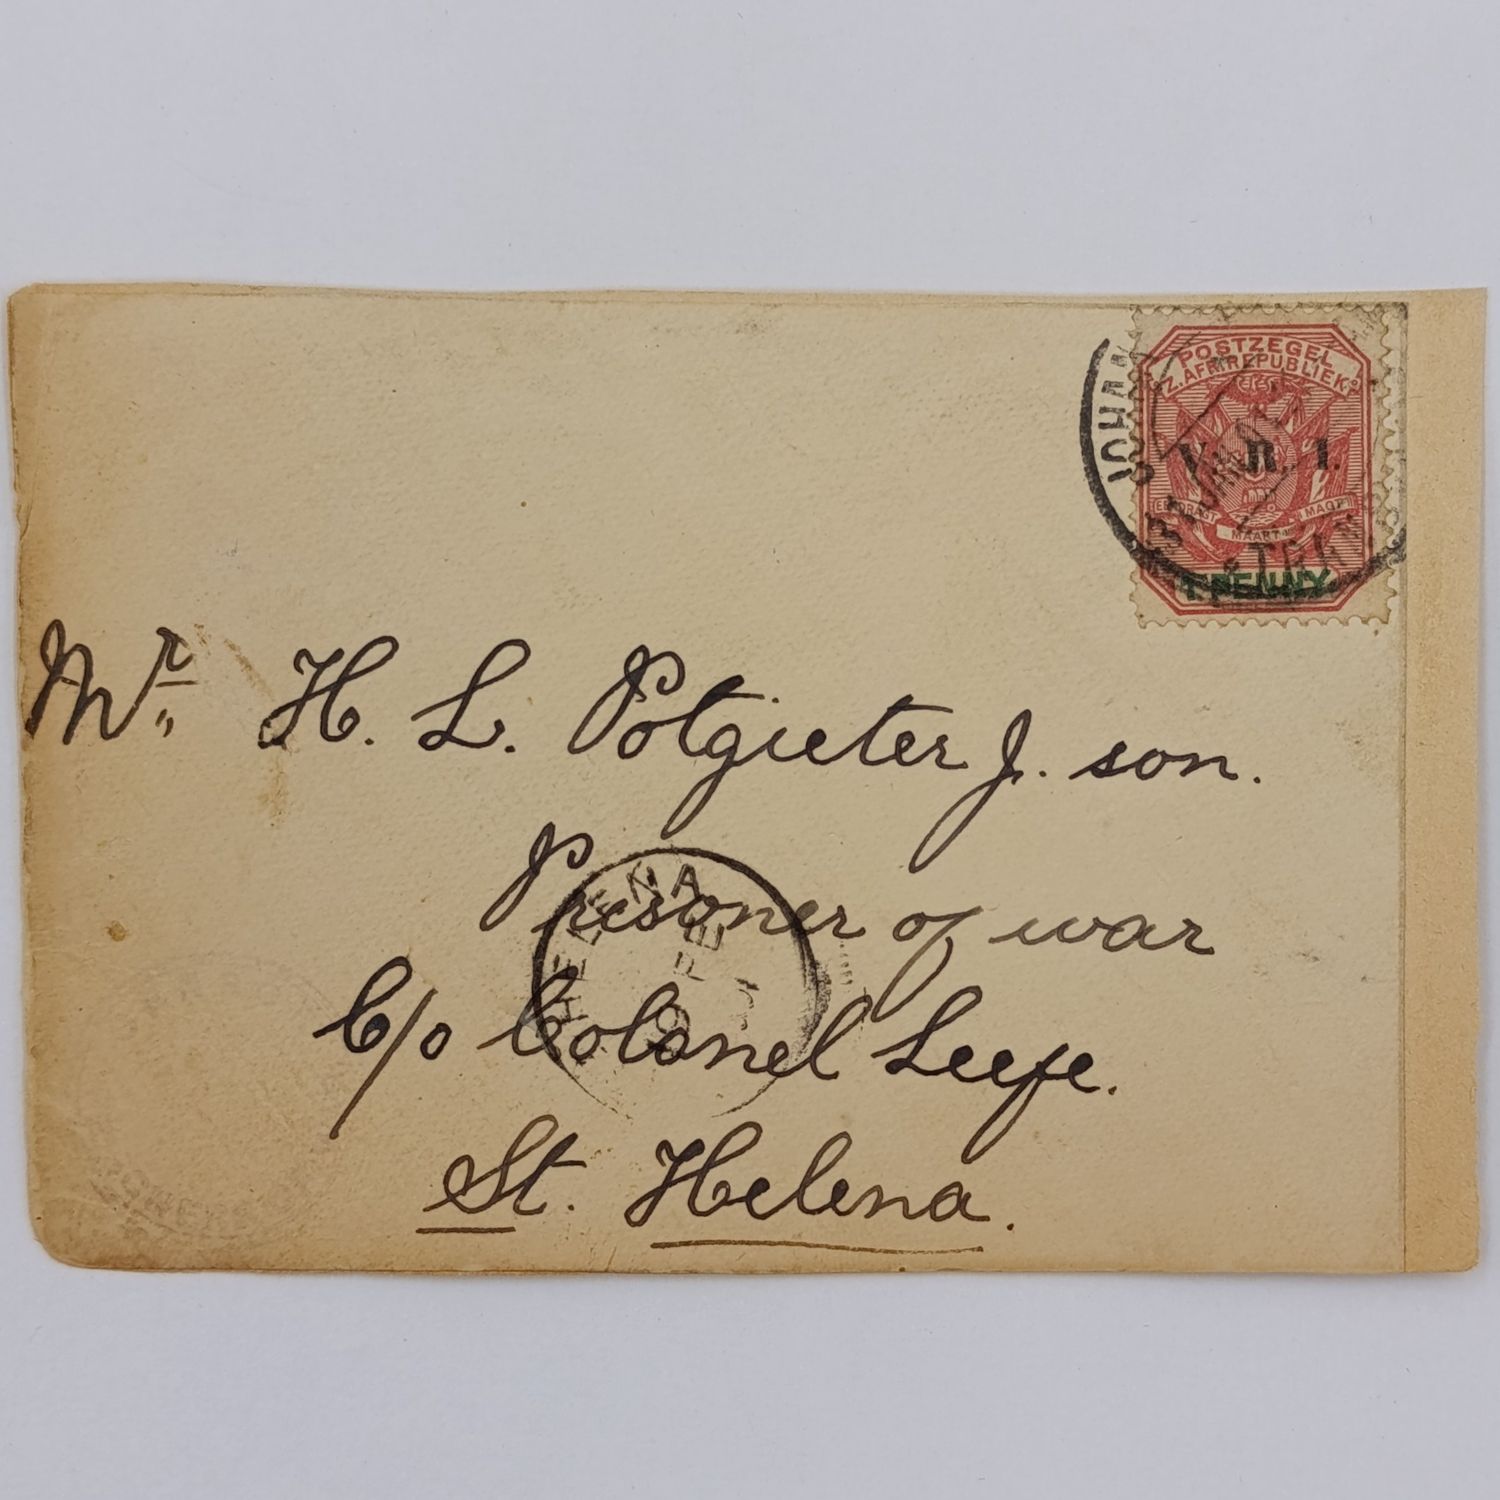 POSTZEGEL
Z. AFR. REPUBLIEK
V. R. I.
EENDRAGT MAAKT MAGT
1 PENNY
JOHANN
31 JAN
TRANS
Mr. H. L. Potgieter J. son.
Prisoner of war
C/o Colonel Leefe.
St. Helena.
HELENA
FE